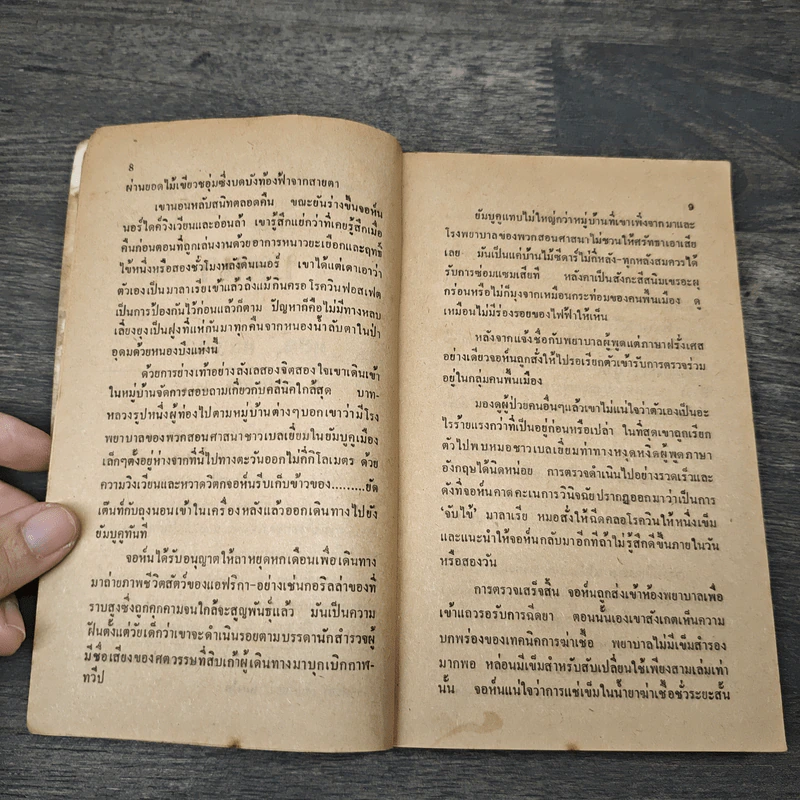 8
ผ่านยอดไม้เขียวชอุ่มซึ่งบดบังท้องฟ้าจากสายตา
เขานอนหลับสนิทตลอดคืน ขณะยันร่างขึ้นจอห์น
นอร์ไดค์วิงเวียนและอ่อนล้า เขารู้สึกแย่กว่าที่เคยรู้สึกเมื่อ
คืนก่อนตอนที่ถูกเล่นงานด้วยอาการหนาวยะเยือกและฤทธิ์
ไข้หนึ่งหรือสองชั่วโมงหลังดินเนอร์ เขาได้แต่เดาเอาว่า
ตัวเองเป็นมาลาเรียเข้าแล้วถึงแม้กินคลอโรควินฟอสเฟต
เป็นการป้องกันไว้ก่อนแล้วก็ตาม ปัญหาก็คือไม่มีทางหลบ
เลี่ยงยุงเป็นฝูงที่แห่กันมาทุกคืนจากหนองน้ำลับตาในป่า
อุดมด้วยหนองบึงแห่งนี้
ด้วยการย่างเท้าอย่างลังเลสองจิตสองใจเขาเดินเข้า
ในหมู่บ้านจัดการสอบถามเกี่ยวกับคลีนิคใกล้สุด บาท-
หลวงรูปหนึ่งผู้ท่องไปตามหมู่บ้านต่างๆบอกเขาว่ามีโรง
พยาบาลของพวกสอนศาสนาชาวเบลเยี่ยมในยัมบูคูเมือง
เล็กๆตั้งอยู่ห่างจากที่นี่ไปทางตะวันออกไม่กี่กิโลเมตร ด้วย
ความวิงเวียนและหวาดวิตกจอห์นรีบเก็บข้าวของ.........ยัด
เต๊นท์กับถุงนอนเข้าในเครื่องหลังแล้วออกเดินทางไปยัง
ยัมบูคูทันที
จอห์นได้รับอนุญาตให้ลาหยุดหกเดือนเพื่อเดินทาง
มาถ่ายภาพชีวิตสัตว์ของแอฟริกา-อย่างเช่นกอริลล่าของที่
ราบสูงซึ่งถูกคุกคามจนใกล้จะสูญพันธุ์แล้ว มันเป็นความ
ฝันตั้งแต่วัยเด็กว่าเขาจะดำเนินรอยตามบรรดานักสำรวจผู้
มีชื่อเสียงของศตวรรษที่สิบเก้าผู้เดินทางมาบุกเบิกกาฬ-
ทวีป
๑
ยัมบูคูแทบไม่ใหญ่กว่าหมู่บ้านที่เขาเพิ่งจากมาและ
โรงพยาบาลของพวกสอนศาสนาไม่ชวนให้ศรัทธาเอาเสีย
เลย มันเป็นแค่บ้านไม้ซีดาร์ไม่กี่หลัง-ทุกหลังสมควรได้
รับการซ่อมแซมเสียที หลังคาเป็นสังกะสีสนิมเขรอะผุ
กร่อนหรือไม่ก็มุงจากเหมือนกระท่อมของคนพื้นเมือง ดู
เหมือนไม่มีร่องรอยของไฟฟ้าให้เห็น
หลังจากแจ้งชื่อกับพยาบาลผู้พูดแต่ภาษาฝรั่งเศส
อย่างเดียวจอห์นถูกสั่งให้ไปรอเรียกตัวเข้ารับการตรวจร่วม
อยู่ในกลุ่มคนพื้นเมือง
มองดูผู้ป่วยคนอื่นๆแล้วเขาไม่แน่ใจว่าตัวเองเป็นอะ
ไรร้ายแรงกว่าที่เป็นอยู่ก่อนหรือเปล่า ในที่สุดเขาถูกเรียก
ตัวไปพบหมอชาวเบลเยี่ยมท่าทางหงุดหงิดผู้พูดภาษา
อังกฤษได้นิดหน่อย การตรวจดำเนินไปอย่างรวดเร็วและ
ดังที่จอห์นคาดคะเนการวินิจฉัยปรากฏออกมาว่าเป็นการ
'จับไข้' มาลาเรีย หมอสั่งให้ฉีดคลอโรควินให้หนึ่งเข็ม
และแนะนำให้จอห์นกลับมาอีกทีถ้าไม่รู้สึกดีขึ้นภายในวัน
หรือสองวัน
การตรวจเสร็จสิ้น จอห์นถูกส่งเข้าห้องพยาบาลเพื่อ
เข้าแถวรอรับการฉีดยา ตอนนั้นเองเขาสังเกตเห็นความ
บกพร่องของเทคนิคการฆ่าเชื้อ พยาบาลไม่มีเข็มสำรอง
มากพอ หล่อนมีเข็มสำหรับสับเปลี่ยนใช้เพียงสามเล่มเท่า
นั้น จอห์นแน่ใจว่าการแช่เข็มในน้ำยาฆ่าเชื้อชั่วระยะสั้น